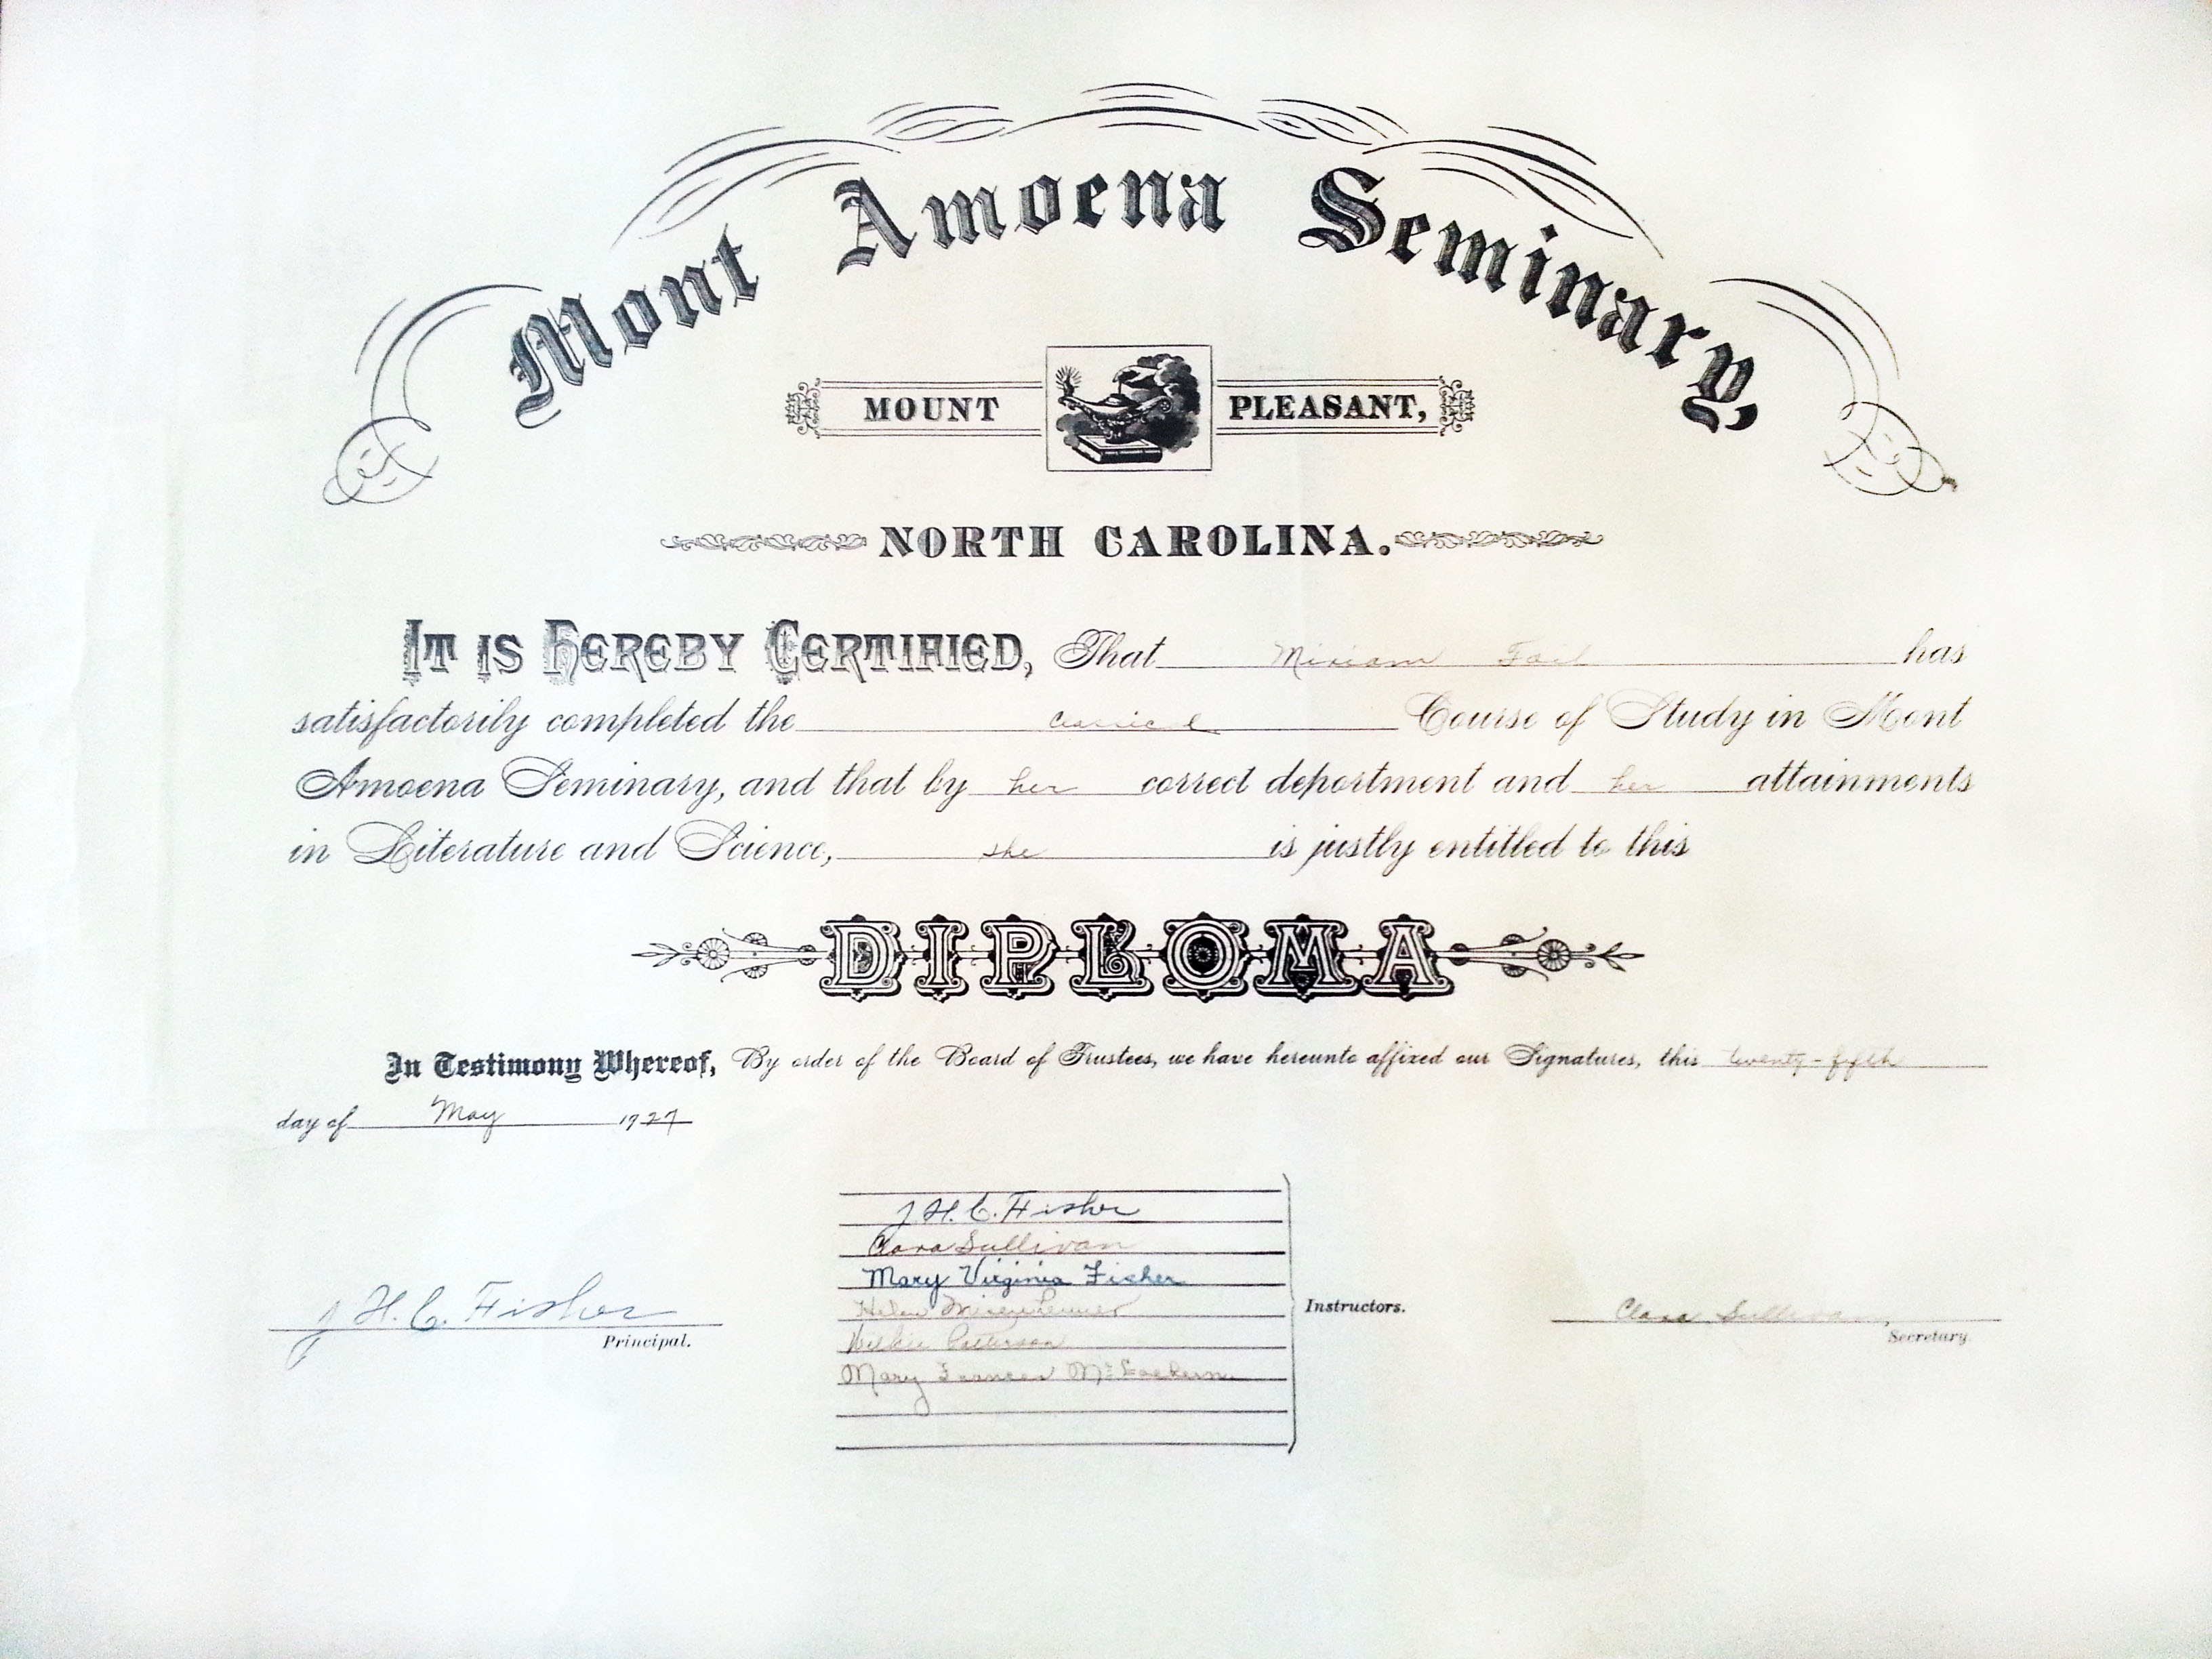 Mont Amoena Seminary
MOUNT PLEASANT,
NORTH CAROLINA.
IT IS HEREBY CERTIFIED, That Miriam Fail has
satisfactorily completed the Classical Course of Study in Mont
Amoena Seminary, and that by her correct deportment and her attainments
in Literature and Science, she is justly entitled to this
DIPLOMA
In Testimony Whereof, By order of the Board of Trustees, we have hereunto affixed our Signatures, this twenty-fifth
day of May 1927
J H. C. Fisher
Clara Sullivan
Mary Virginia Fisher
Helen Misenheimer
Patterson
Mary Frances
Instructors.
J H. C. Fisher
Principal.
Clara Sullivan,
Secretary.